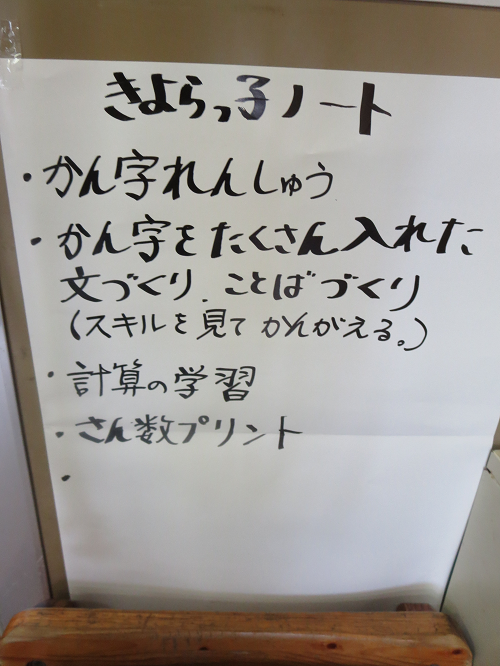 きよらっ子ノート
・かん字れんしゅう
・かん字をたくさん入れた
文づくり、ことばづくり
(スキルを見てかんがえる。)
・計算の学習
・さん数プリント
・